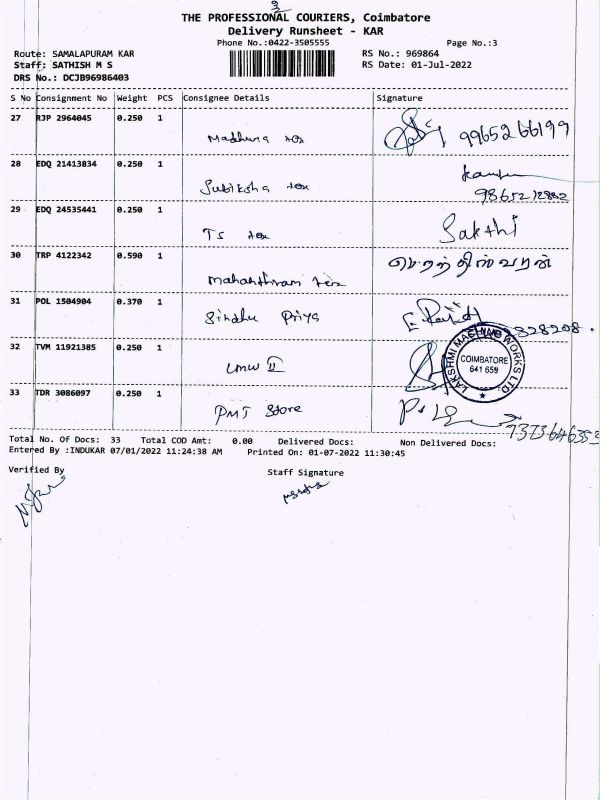 THE PROFESSIONAL COURIERS, Coimbatore
Delivery Runsheet - KAR
Phone No.:0422-3505555 Page No.:3
Route: SAMALAPURAM KAR RS No.: 969864
Staff: SATHISH M S RS Date: 01-Jul-2022
DRS No.: DCJB96986403
S No Consignment No Weight PCS Consignee Details Signature
27 RJP 2964045 0.250 1
Madhura tex 9965266199
28 EDQ 21413834 0.250 1
Subiksha tex
29 EDQ 24535441 0.250 1
TS tex Sakthi
30 TRP 4122342 0.590 1
tex
31 POL 1504904 0.370 1
Sindhu Priya
328208.
32 TVM 11921385 0.250 1
LMW II
LAKSHMI MACHINE WORKS LTD.
COIMBATORE
641 659
33 TDR 3086097 0.250 1
PMT Store
Total No. Of Docs: 33 Total COD Amt: 0.00 Delivered Docs: Non Delivered Docs:
7373646353
Entered By :INDUKAR 07/01/2022 11:24:38 AM Printed On: 01-07-2022 11:30:45
Verified By Staff Signature